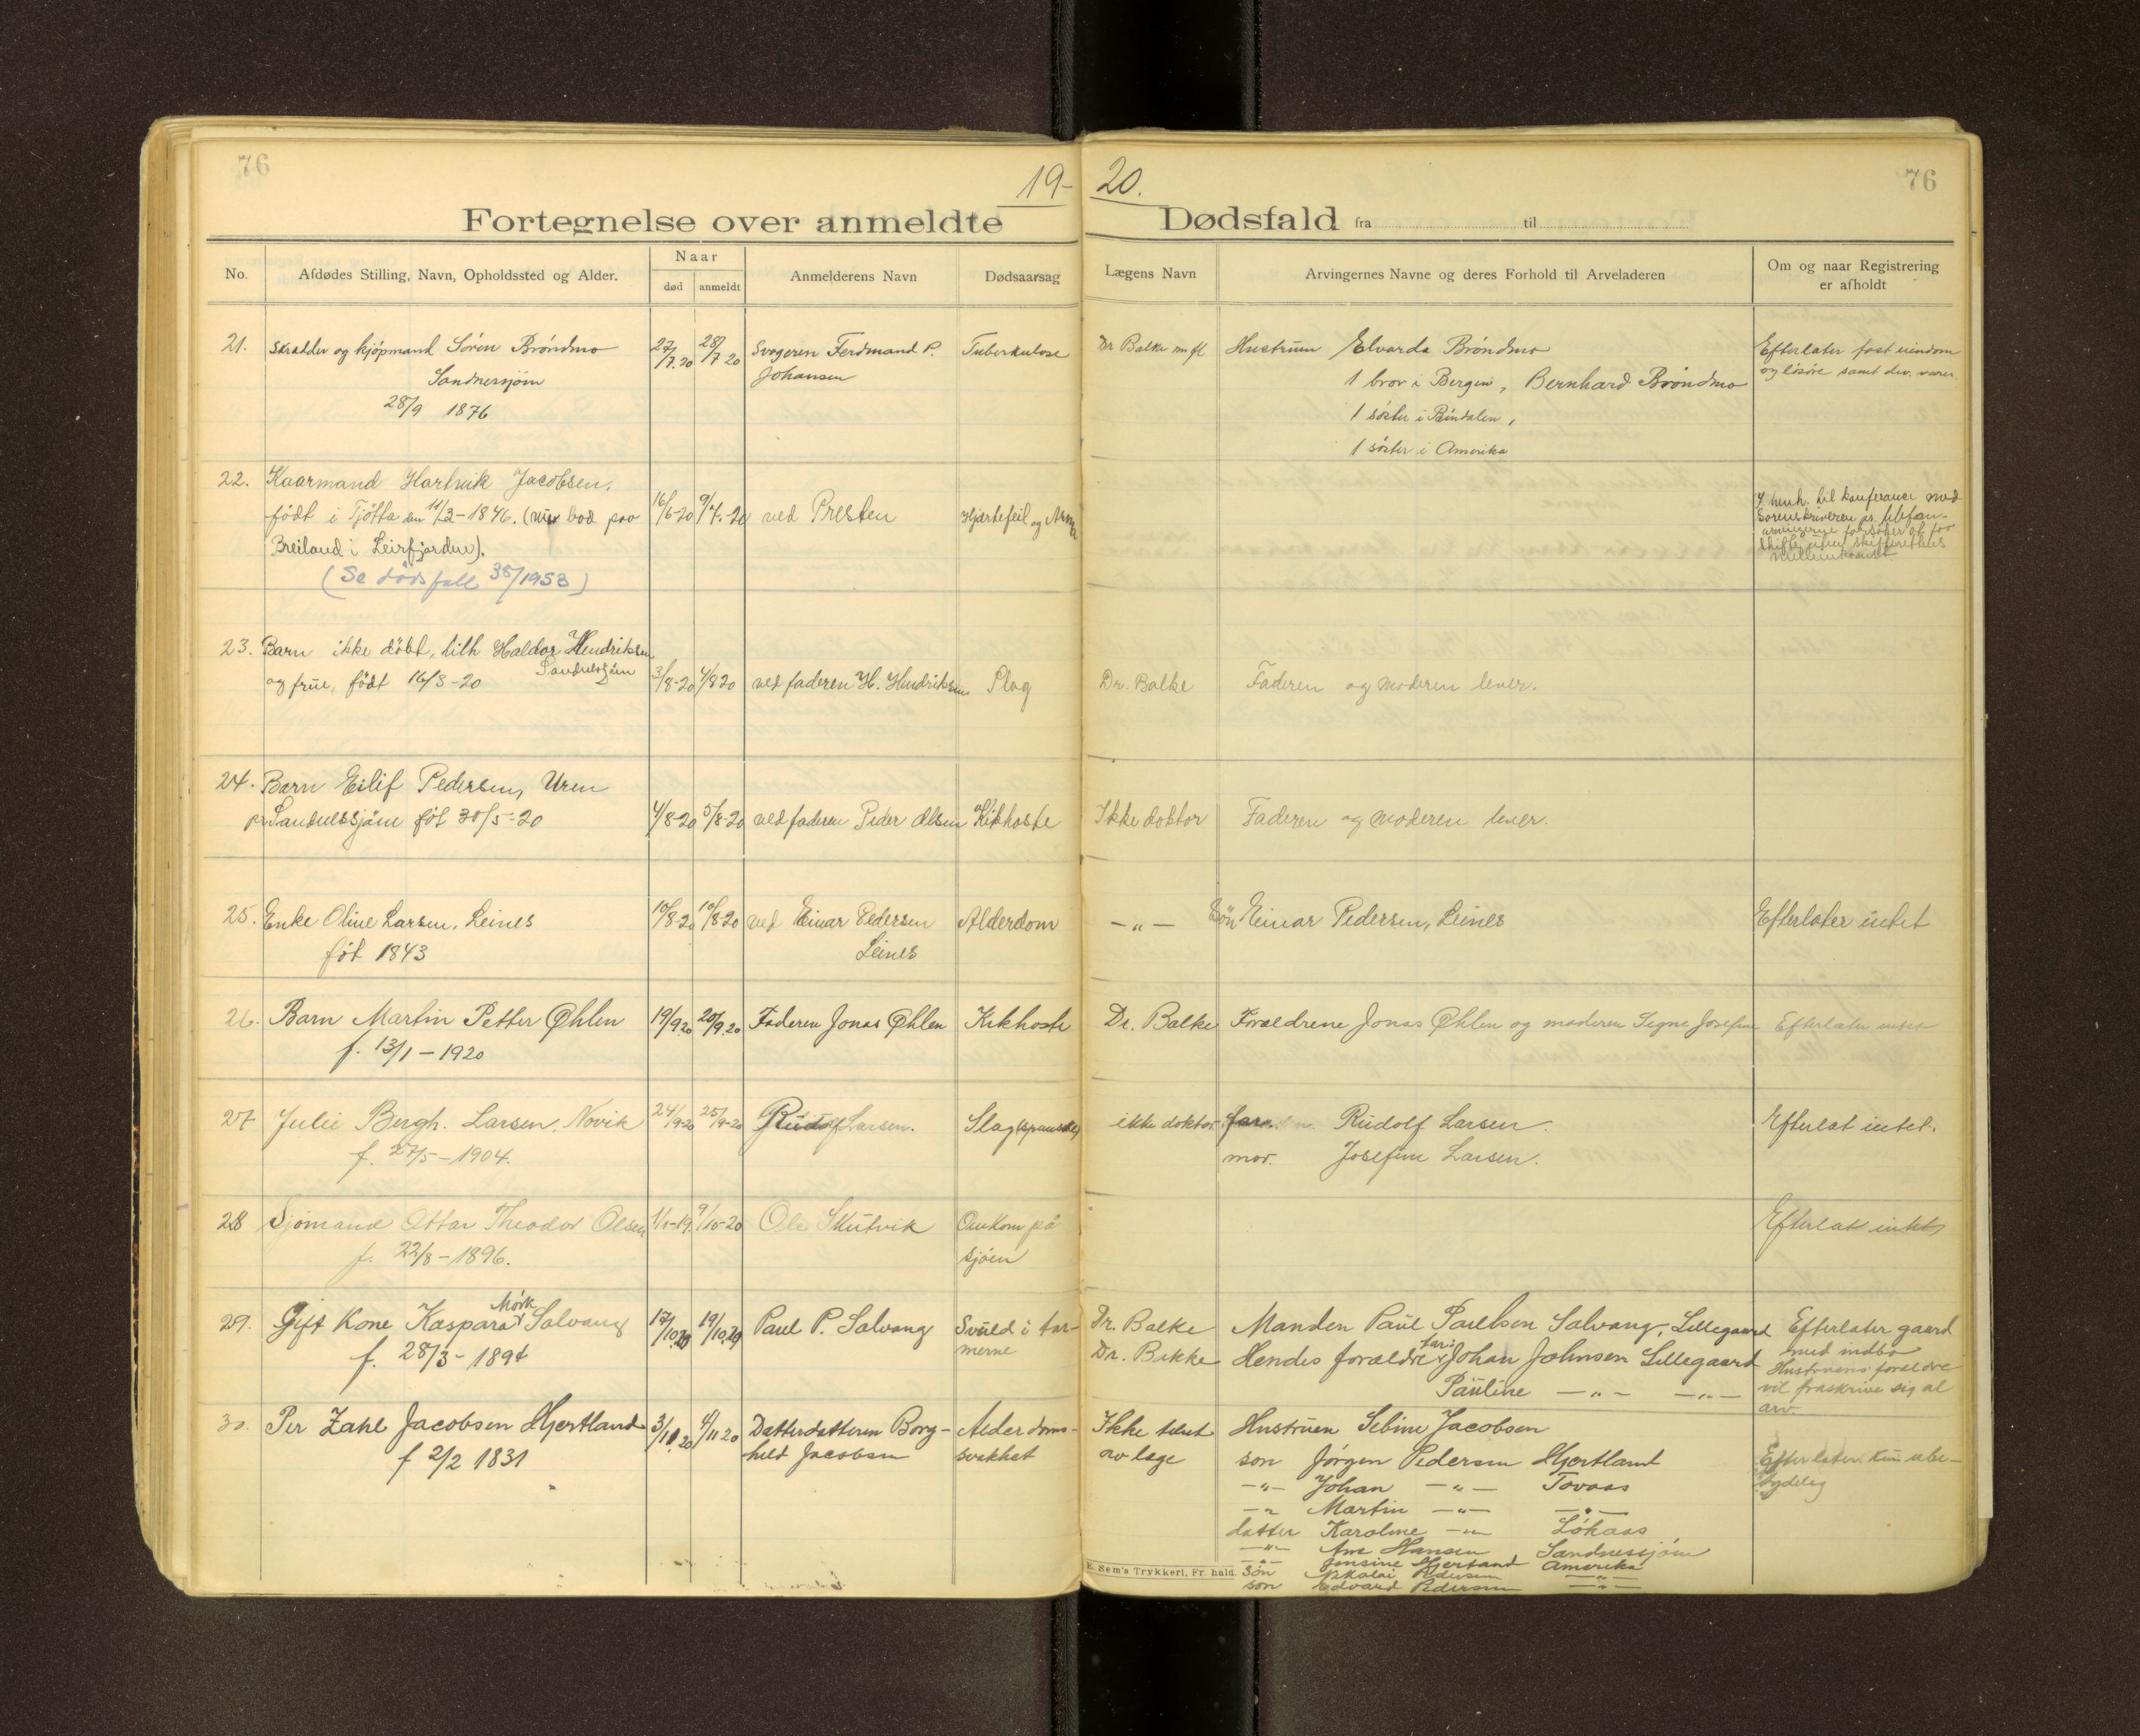 76
19-
20.
76
Fortegnelse over anmeldte
Dødsfald fra til
No.
Afdødes Stilling, Navn, Opholdssted og Alder.
Naar
død
anmeldt
Anmelderens Navn
Dødsaarsag
Lægens Navn
Arvingernes Navne og deres Forhold til Arveladeren
Om og naar Registrering
er afholdt
21. Skrædder og kjøpmand Sören Bröndmo 27/7.20 28/7 20 Svogeren Ferdinand P. Tuberkulose Dr Balke m fl Hustruen Elvarda Bröndmo Efterlater fast eiendom
Sandnessjöen Johansen 1 bror i Bergen, Bernhard Bröndmo og lösöre samt div. varer.
28/9 1876 1 söster i Bindalen,
1 söster i Amerika
22. Kaarmand Hartvik Jacobsen,
født i Tjötta den 11/2-1846. bod paa 16/6-20 9/7.-20 ved Presten Hjærtefeil og
Breiland i Leirfjorden).
(Se dödsfall 35/1953)
I henh. til konferance med
Sorenskriveren pr. telefon-
arvingerne forsöker at faa
skifte uten skifterettens
mellemkomst.
23. Barn ikke döbt, tilh Haldor Hendriksen
Sandnessjöen
og frue, født 16/3-20 3/8-20 4/8 20 ved faderen H. Hendriksen Slag Dr. Balke Faderen og moderen lever.
24. Barn Eilif Pedersen, Uren
pr Sandnessjöen föt 30/5-20 4/8-20 5/8-20 ved faderen Peder Olsen Kikhoste Ikke doktor Faderen og moderen lever.
25. Enke Oline Larsen, Leines 10/8-20 10/8-20 ved Einar Pedersen Alderdom -"- Sön Einar Pedersen, Leines Efterlater intet
föt 1843 Leines
26. Barn Martin Petter Øhlen 19/9.20 20/9.20 Faderen Jonas Øhlen Kikhoste Dr. Balke Forældrene Jonas Øhlen og moderen Signe Josefine Efterlater intet
f. 13/1-1920
27 Julie Bergh. Larsen, Novik 24/9-20 25/9-20 Rudolf Larsen. Slag (spanske) ikke doktor far. Rudolf Larsen. Efterlat intet.
f. 27/5-1904. mor. Josefine Larsen.
28 Sjömand Ottar Theodor Olsen 1/1-19. 9/10-20 Ole Skutvik Omkom på Efterlat intet
f. 22/8-1896. sjöen
29. Gift Kone Kaspara Mörk Salvang 17/10.20 19/10.20 Paul P. Salvang Svuld i tar- Dr. Balke Manden Paul Paulsen Salvang, Lillegaard Efterlater gaard
f. 28/3-1894 merne Dr. Bakke Hendes forældre far: Johan Johnsen Lillegaard med indbo
Pauline -"- -"- Hustruens forældre
vil fraskrive sig al
arv.
30. Per Zahl Jacobsen Hjertland 3/11.20 4/11 20 Datterdatteren Borg- Alderdoms- Ikke tilset Hustruen Sebine Jacobsen
f 2/2 1831 hild Jacobsen svækket av læge sön Jørgen Pedersen Hjertland Efterlater kun ube-
-"- Johan -"- Tovaas tydelig
-"- Martin -"- -"-
datter Karoline -"- Lökaas
-"- Ane Hansen Sandnessjöen
-"- Jensine Hjertland Amerika
sön Nikolai Pedersen -"-
sön Edvard Pedersen -"-
E. Sem's Trykkeri, Fr. hald.